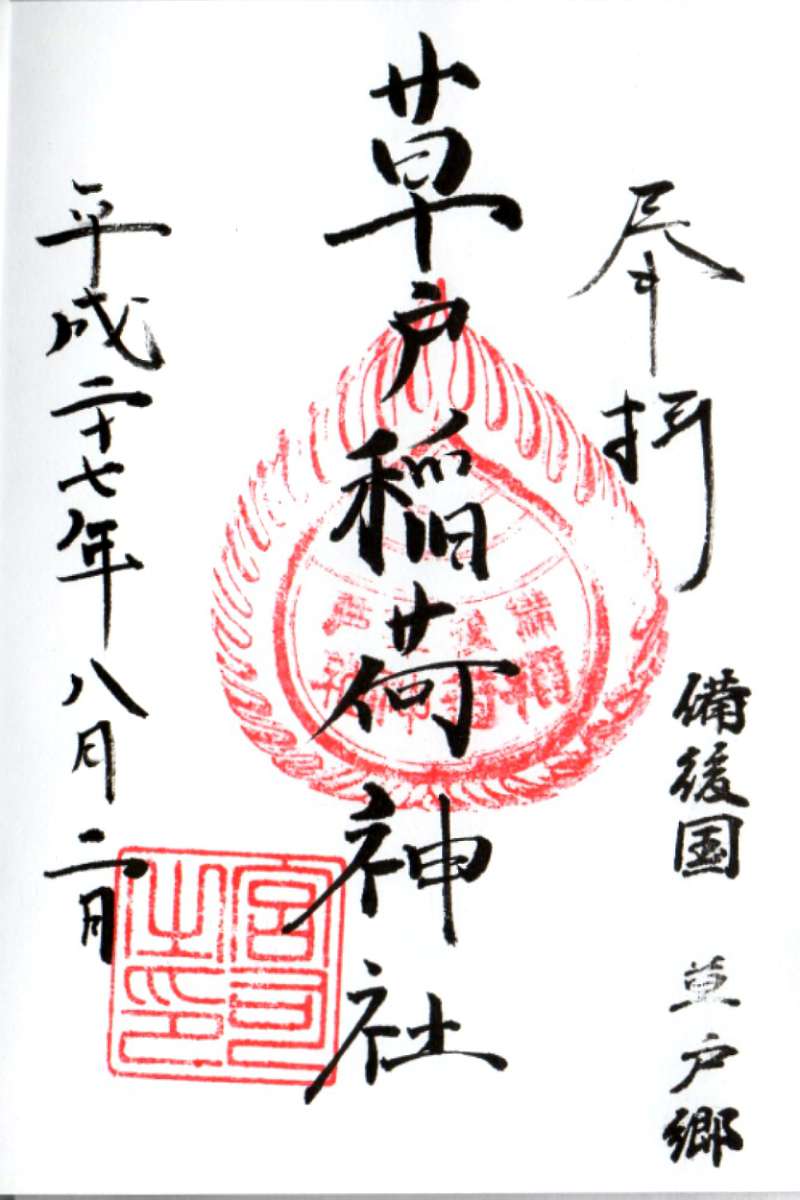 奉拝
備後国 草戸郷
草戸稲荷神社
備後草戸
稲荷神社
宮司之印
平成二十七年八月二日